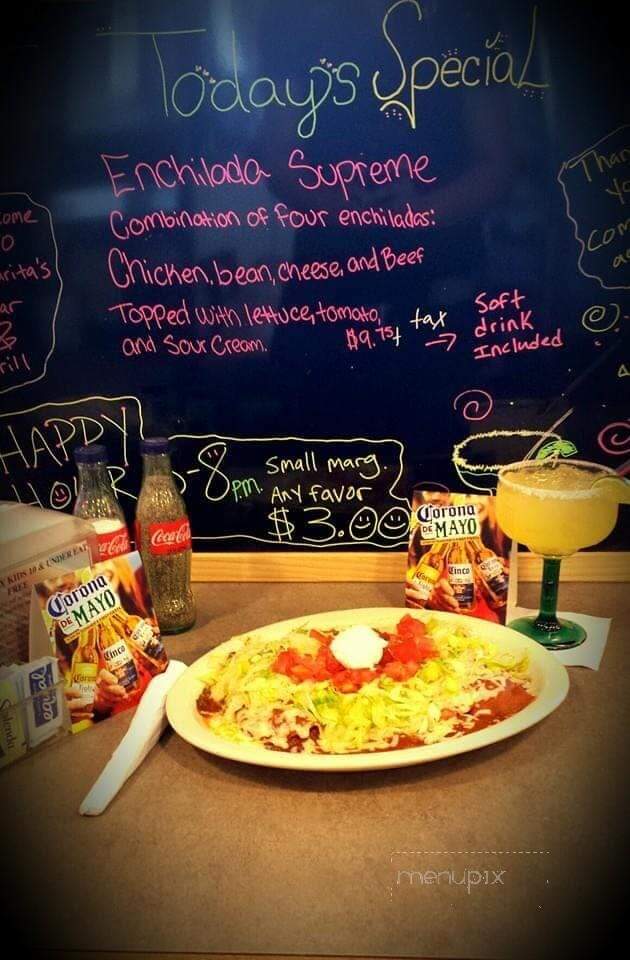 Today's Special
Enchilada Supreme
Combination of four enchiladas:
Chicken, bean, cheese, and Beef
Topped with lettuce, tomato,
and Sour Cream.
$9.75 + tax
→
Soft
drink
Included
ome
o
rita's
ar
&
rill
Than
Yo
Com
a
HAPPY
HOUR
-8 p.m.
Small marg.
Any favor
$3.00
Coca-Cola
Coca-Cola
KIDS 10 & UNDER EAT
FREE
Corona
DE MAYO
Corona
Cinco
Corona
DE MAYO
Cinco
Splenda
equal
menupix